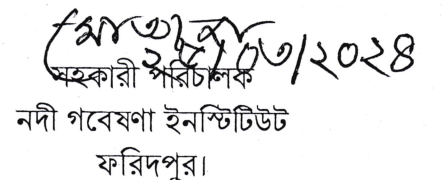 ২৫/০৩/২০২৪
সহকারী পরিচালক
নদী গবেষণা ইনস্টিটিউট
ফরিদপুর।